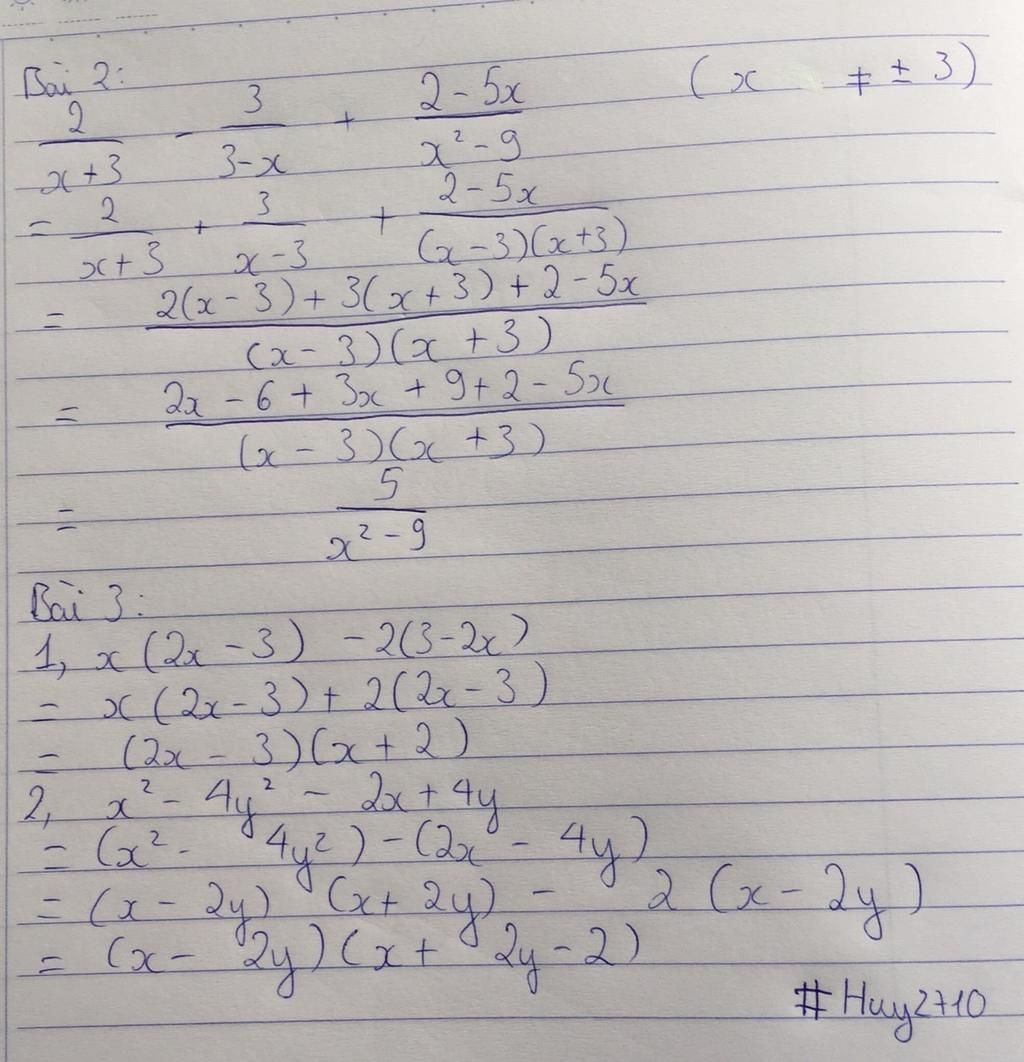 Bài 2: (x ≠ ± 3)
2/(x+3) - 3/(3-x) + (2-5x)/(x²-9)
= 2/(x+3) + 3/(x-3) + (2-5x)/((x-3)(x+3))
= (2(x-3)+3(x+3)+2-5x)/((x-3)(x+3))
= (2x-6+3x+9+2-5x)/((x-3)(x+3))
= 5/(x²-9)
Bài 3:
1, x(2x-3) -2(3-2x)
= x(2x-3)+2(2x-3)
= (2x-3)(x+2)
2, x²-4y²-2x+4y
= (x²-4y²)-(2x-4y)
= (x-2y)(x+2y)-2(x-2y)
= (x-2y)(x+2y-2)
#Huy2710